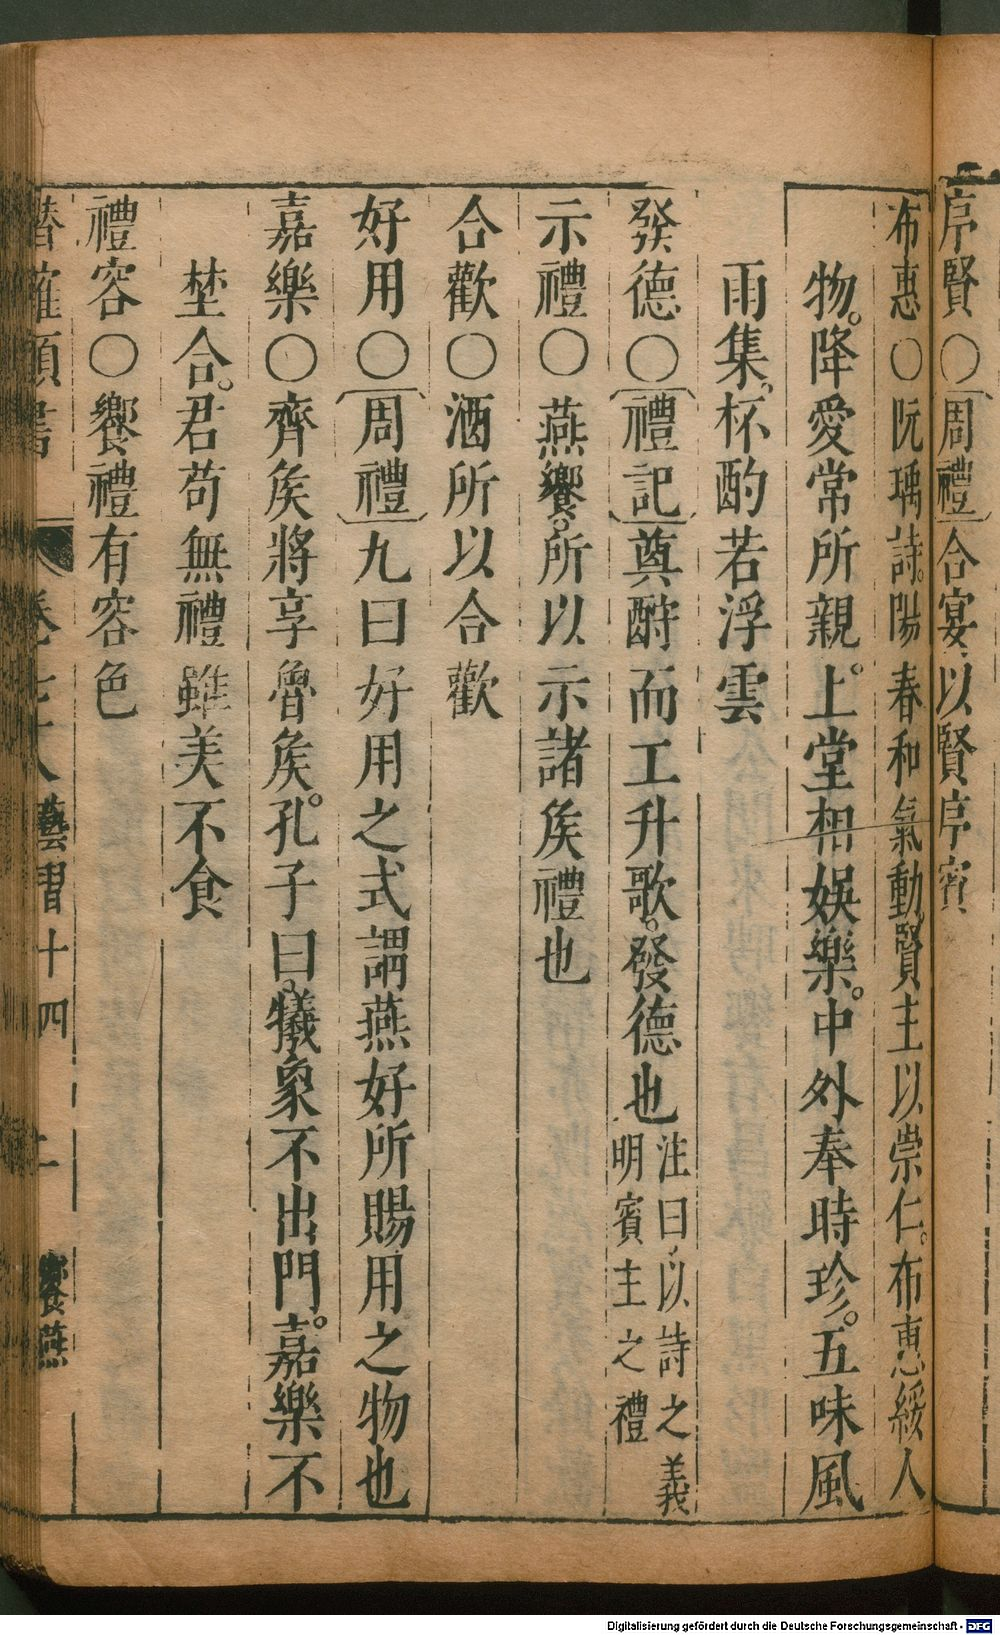 序賢○周禮合宴以賢序賓
布惠○阮瑀詩陽春和氣動賢主以崇仁布惠綏人
物降愛常所親上堂相娛樂中外奉時珍五味風
雨集杯酌若浮雲
發德○禮記奠酧而工升歌發德也注曰以詩之義
明賓主之禮
示禮○燕饗所以示諸矦禮也
合歡○酒所以合歡
好用○周禮九曰好用之式謂燕好所賜用之物也
嘉樂○齊矦將享魯矦孔子曰犧象不出門嘉樂不
埜合君苟無禮雖美不食
禮容○饗禮有容色
卷 藝習十四 二 饗燕
Digitalisierung gefördert durch die Deutsche Forschungsgemeinschaft - DFG